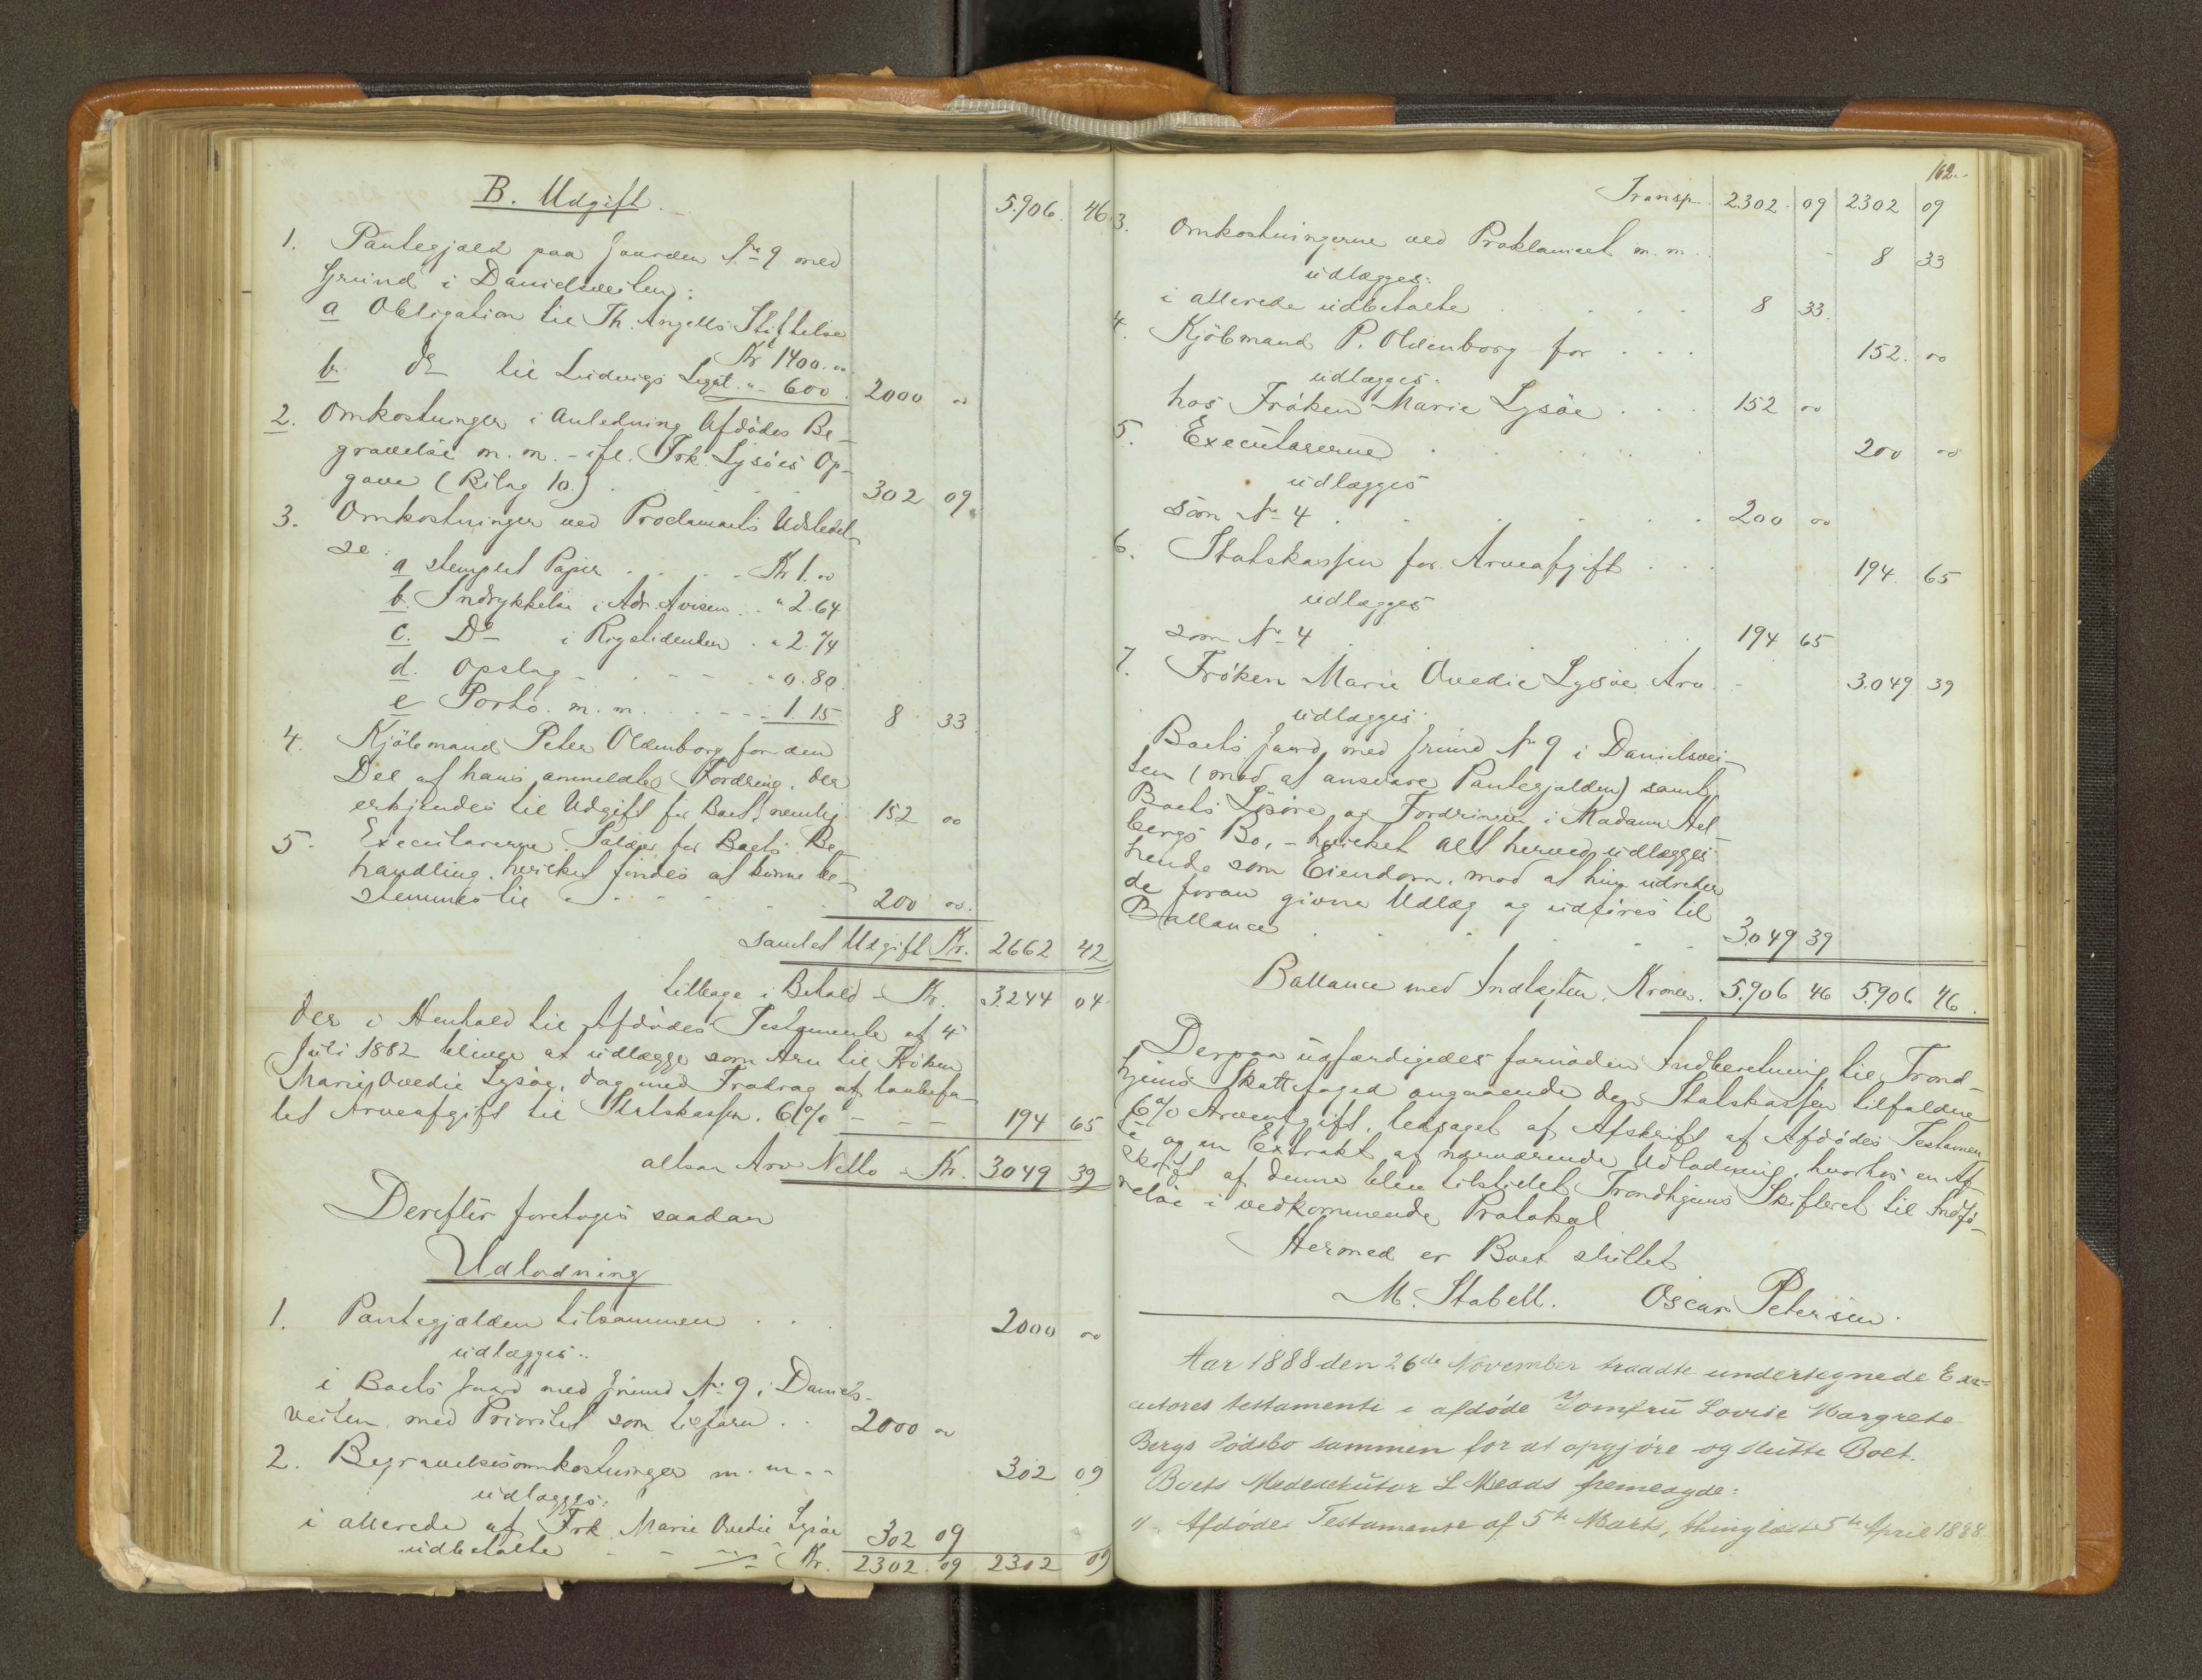 B. Udgift.
5.906. 46.
1. Pantegjæld paa Gaarden No 9 med
Grund i Danielsveiten:
a Obligation til Th. Angells Stiftelse
Kr 1400.00
b. do til Ludvigs Legat. " - 600. 2000 00
2. Omkostninger i Anledning Afdødes Be-
gravelse m. m. - ifl. Frk. Lysøes Op-
gave (Bilag 10.) 302 09.
3. Omkostninger ved Proclamaets Udstedel-
se:
a stemplet Papir - Kr 1.00
b. Indrykkelse i Adr. Avisen " 2.64
c. Do i Rigstidenden " 2.74
d. Opslag - " 0.80.
e Porto. m. m. - 1.15 8 33
4. Kjøbmand Peter Oldenborg for den
Del af hans anmeldte Fordring, der
erkjendes til Udgift for Boet, nemlig 152 00
5. Executorerne Salær for Boets Be-
handling, hvilket findes at kunne be-
stemmes til 200 00.
samlet Udgift Kr. 2662 42
tilbage i Behold - Kr. 3244 04
der i Henhold til Afdødes Testamente af 4
Juli 1882 bliver at udlægge som Arv til Frøken
Marie Ovedie Lysøe, dog med Fradrag af lovbefa-
let Arveafgift til Statskassen. 6% - - - 194 65
altsaa Arv Netto - Kr. 3049 39
Derefter foretoges saadan
Udlodning
1. Pantegjælden tilsammen 2000 00
udlægges:
i Boets Gaard med Grund No 9 i Daniels-
veiten med Prioritet som tilforn 2000 00
2. Begravelsesomkostninger m. m. 302 09
udlægges:
i allerede af Frk. Marie Ovedie Lysøe
udbetalte 302 09
Kr. 2302 09 2302 09
162.
Transp. 2302. 09 2302 09
3. Omkostningerne ved Proklamaet m. m. 8 33
udlægges:
i allerede udbetalte 8 33.
4. Kjøbmand P. Oldenborg for 152. 00
udlægges:
hos Frøken Marie Lysøe 152 00
5. Executorerne 200 00
udlægges
som No 4 200 00
6. Statskassen for Arveafgift 194. 65
udlægges
som No 4 194 65
7. Frøken Marie Ovedie Lysøe Arv - 3.049 39
udlægges:
Boets Gaard med Grund No 9 i Danielsvei-
ten (mod at ansvare Pantegjælden) samt
Boets Løsøre og Fordringer i Madame
bergs Bo, - hvilket Alt herved udlægges
hende som Eiendom, mod at hun udreder
de foran givne Udlæg og udføres til
Ballance 3.049 39
Ballance med Indtægten, Kroner. 5.906 46 5.906 46.
Derpaa udfærdigedes fornøden Indberetning til Trond-
hjems Skattefoged angaaende den Statskassen tilfaldne
6% Arveafgift, ledsaget af Afskrift af Afdødes Testamen-
te og en Extrakt af nærværende Udlodning, hvorhos en Af-
skrift af denne blev tilstillet Trondhjems Skifteret til Indfø-
relse i vedkommende Protokol
Hermed er Boet sluttet
M. Stabell. Oscar Petersen.
Aar 1888 den 26de November traadte undertegnede Exe-
cutores testamenti i afdøde Jomfru Lovise Margrete
Bergs Dødsbo sammen for at opgjøre og slutte Boet.
Boets Medexekutor L Meaas fremlagde:
1. Afdødes Testamente af 5te Marts, thinglæst 5te April 1888